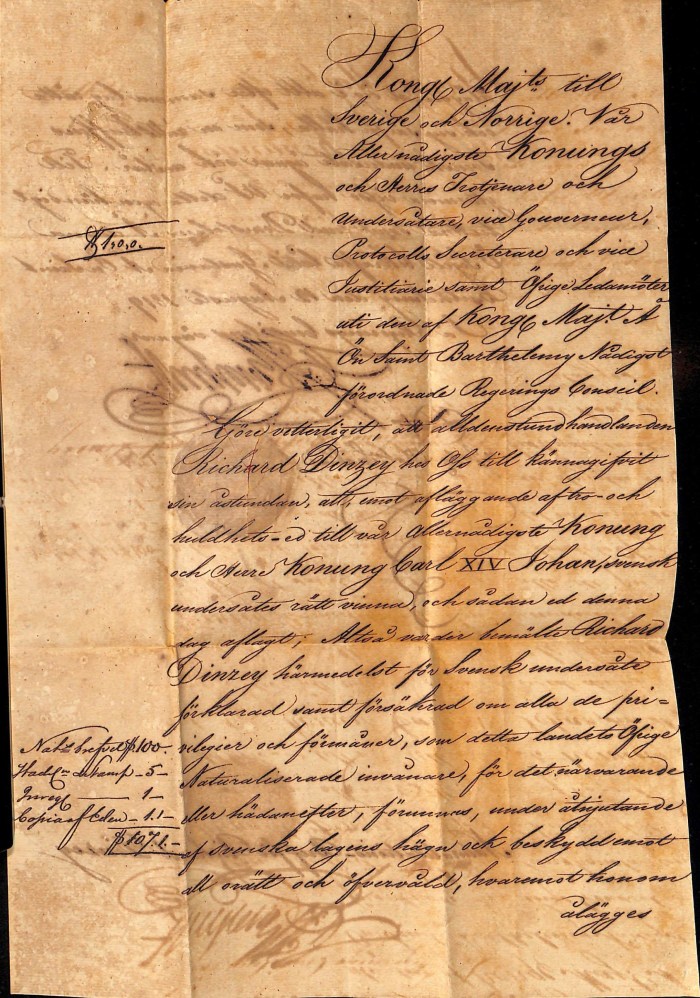 Kongl Majts till
Sverige och Norrige. Vår
Allernådigste Konungs
och Herres Trotjenare och
Undersåtare, vice Gouverneur,
Protocolls Secreterare och vice
Justitiarie samt Öfrige Ledamöter
uti den af Kongl Majt. Å
Ön Saint Barthelemy Nådigst
förordnade Regerings Conseil.
Göre vetterligit, att alldenstund handlanden
Richard Dinzey hos Oss till kännagifvit
sin åstundan, att, emot afläggande af tro- och
huldhets-ed till vår Allernådigste Konung
och Herre Konung Carl XIV Johan, svensk
undersåtes rätt vinna, och sådan ed denna
dag aflagt; Altså varder bemälte Richard
Dinzey härmedelst för Svensk undersåte
förklarad samt försäkrad om alla de pri=
vilegier och förmåner, som detta landets Öfrige
Naturaliserade invånare, för det närvarande
eller hädanefter, förunnas, under åtnjutande
af svenska lagens hägn och beskydd emot
all orätt och öfvervåld, hvaremot honom
ålägges
$ 100.
$100.-
- 5-
- 1-
Copia af Eden - 1.1-
$107.1.-